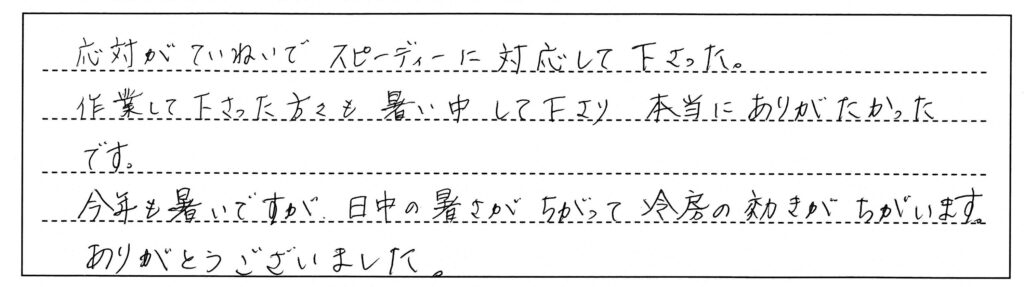 応対がていねいで スピーディーに 対応して下さった。
作業して下さった方々も 暑い中 して下さり 本当に ありがたかった
です。
今年も暑いですが、日中の暑さが ちがって 冷房の効きが ちがいます。
ありがとうございました。